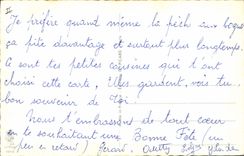 Je préfère quand même la pêche aux coques
ça pite davantage et surtout plus longtemps.
Ce sont tes petites cousines qui t'ont
choisi cette carte, Elles gardent, vois-tu,
bon souvenir de Toi.
Nous t'embrassons de tout cœur
en te souhaitant une Bonne Fête (un
peu en retard)